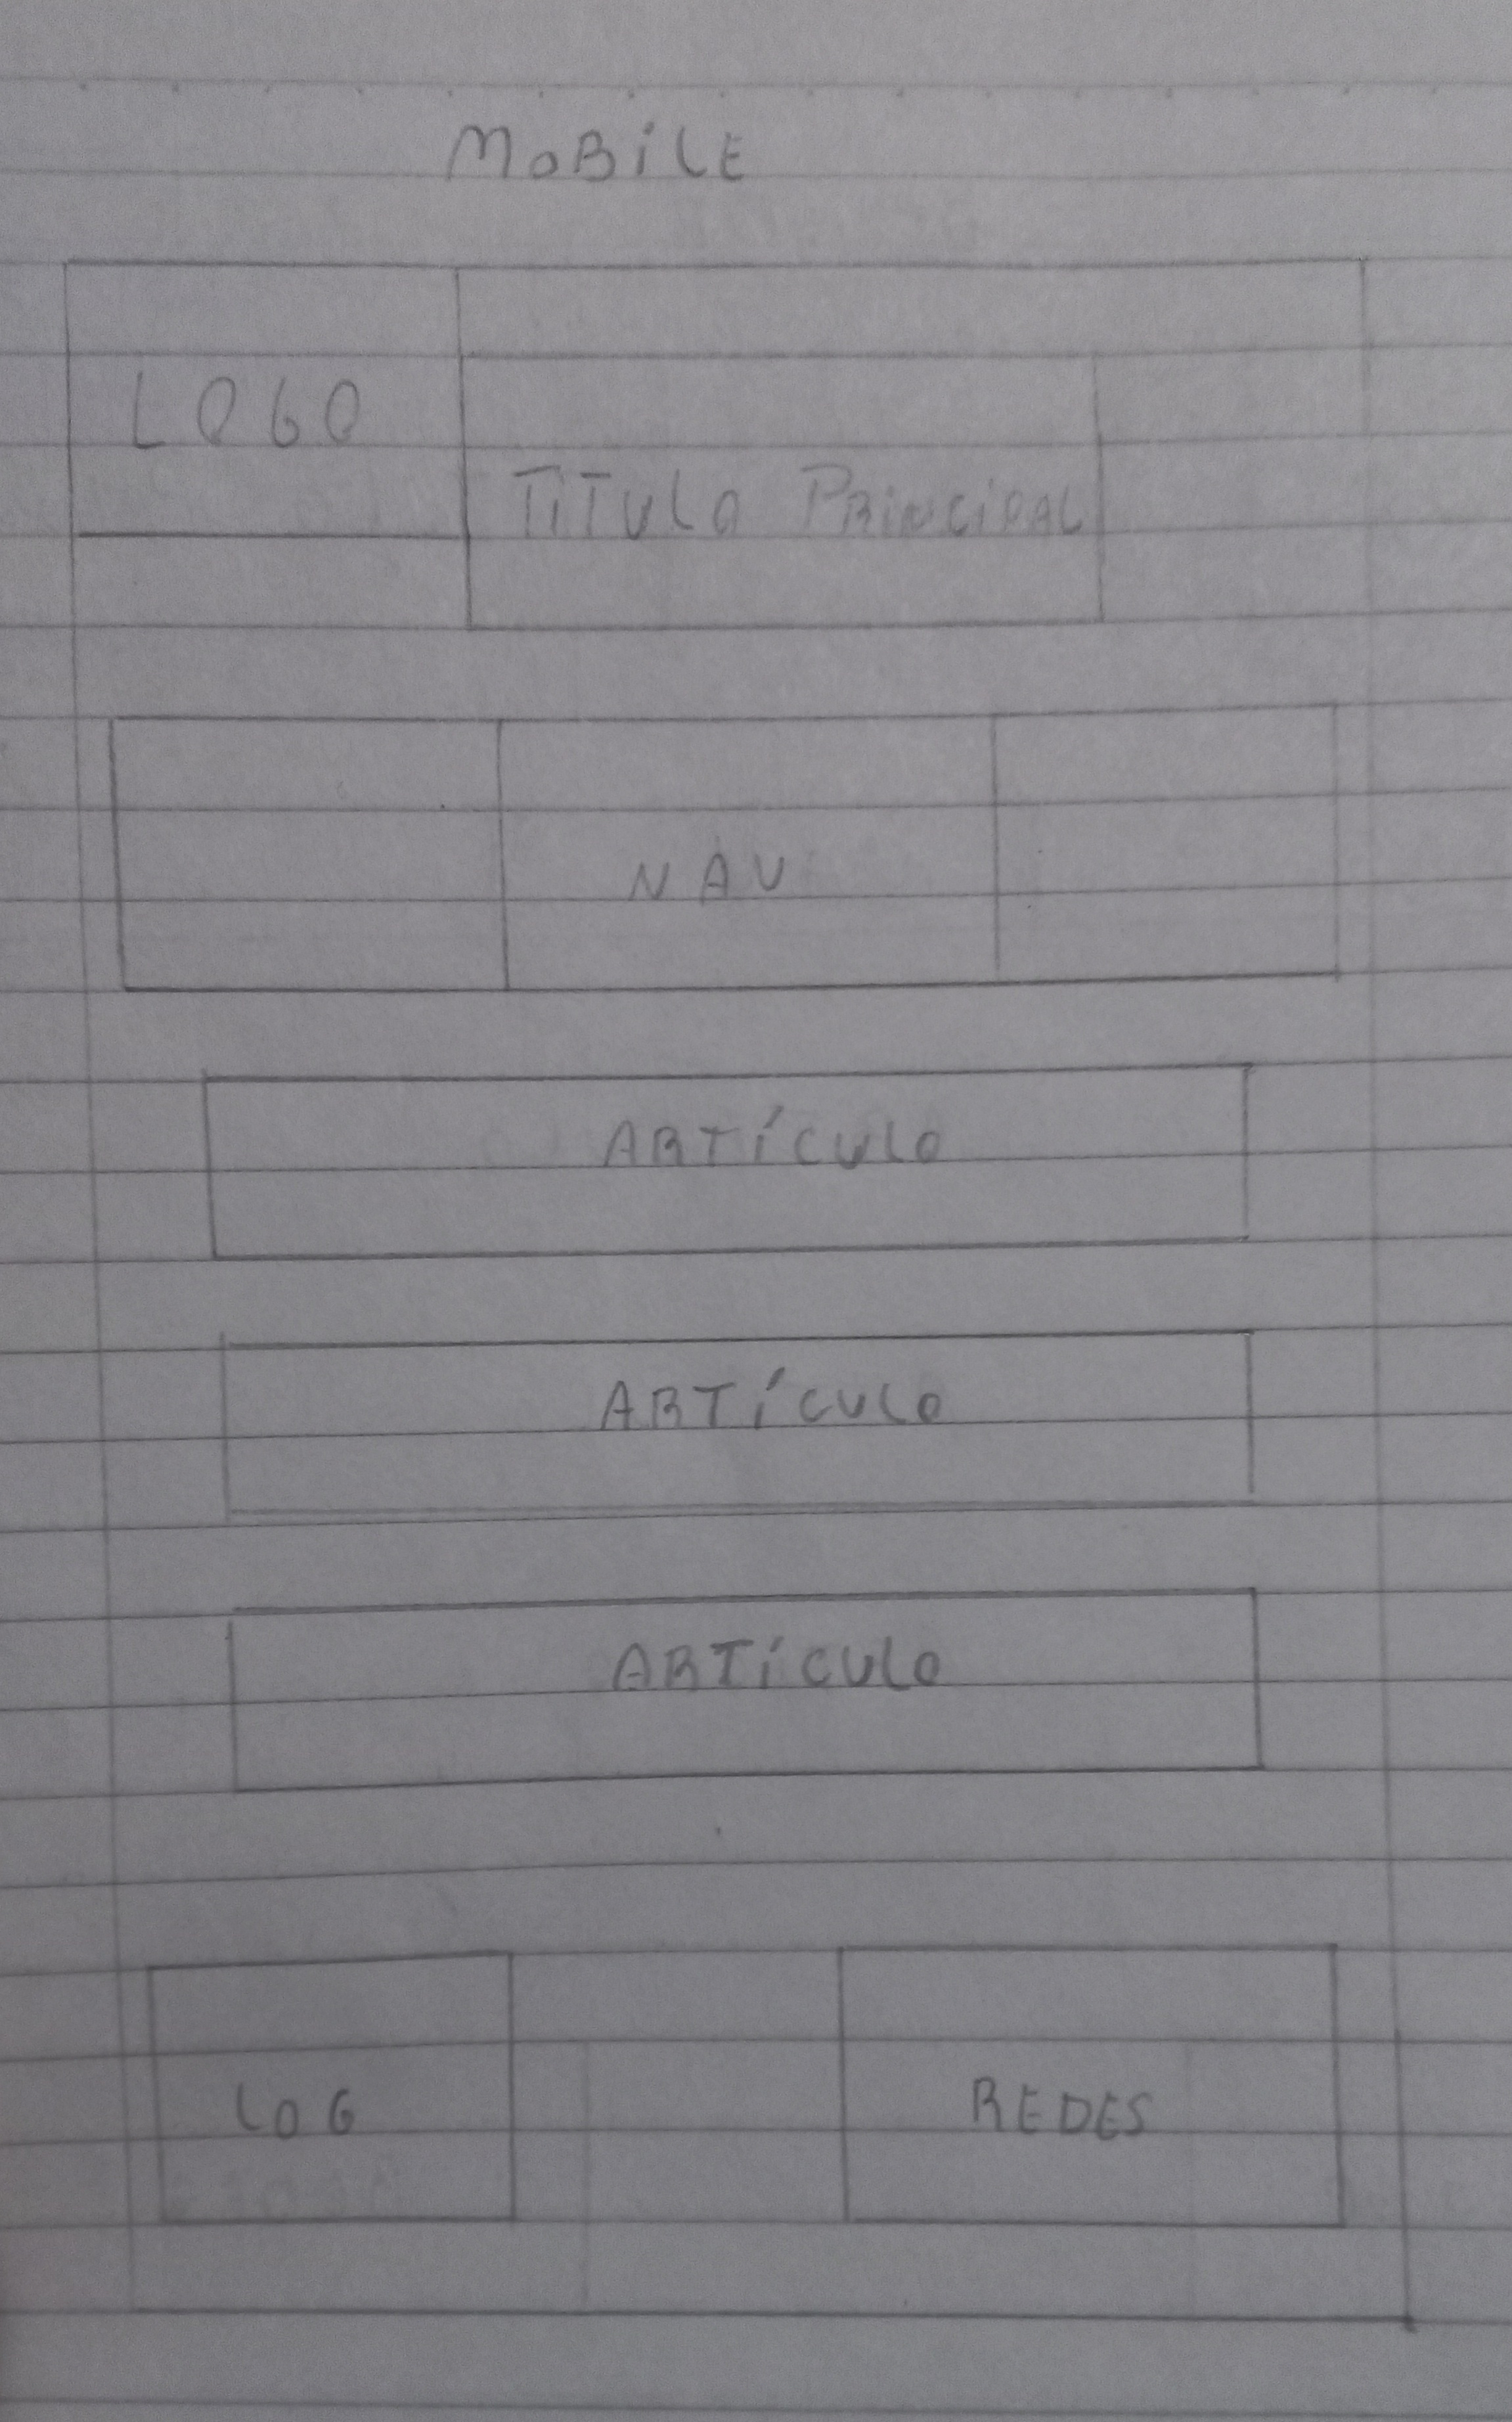 MOBILE
LOGO
TITULO PRINCIPAL
NAV
ARTÍCULO
ARTÍCULO
ARTÍCULO
LOG
REDES